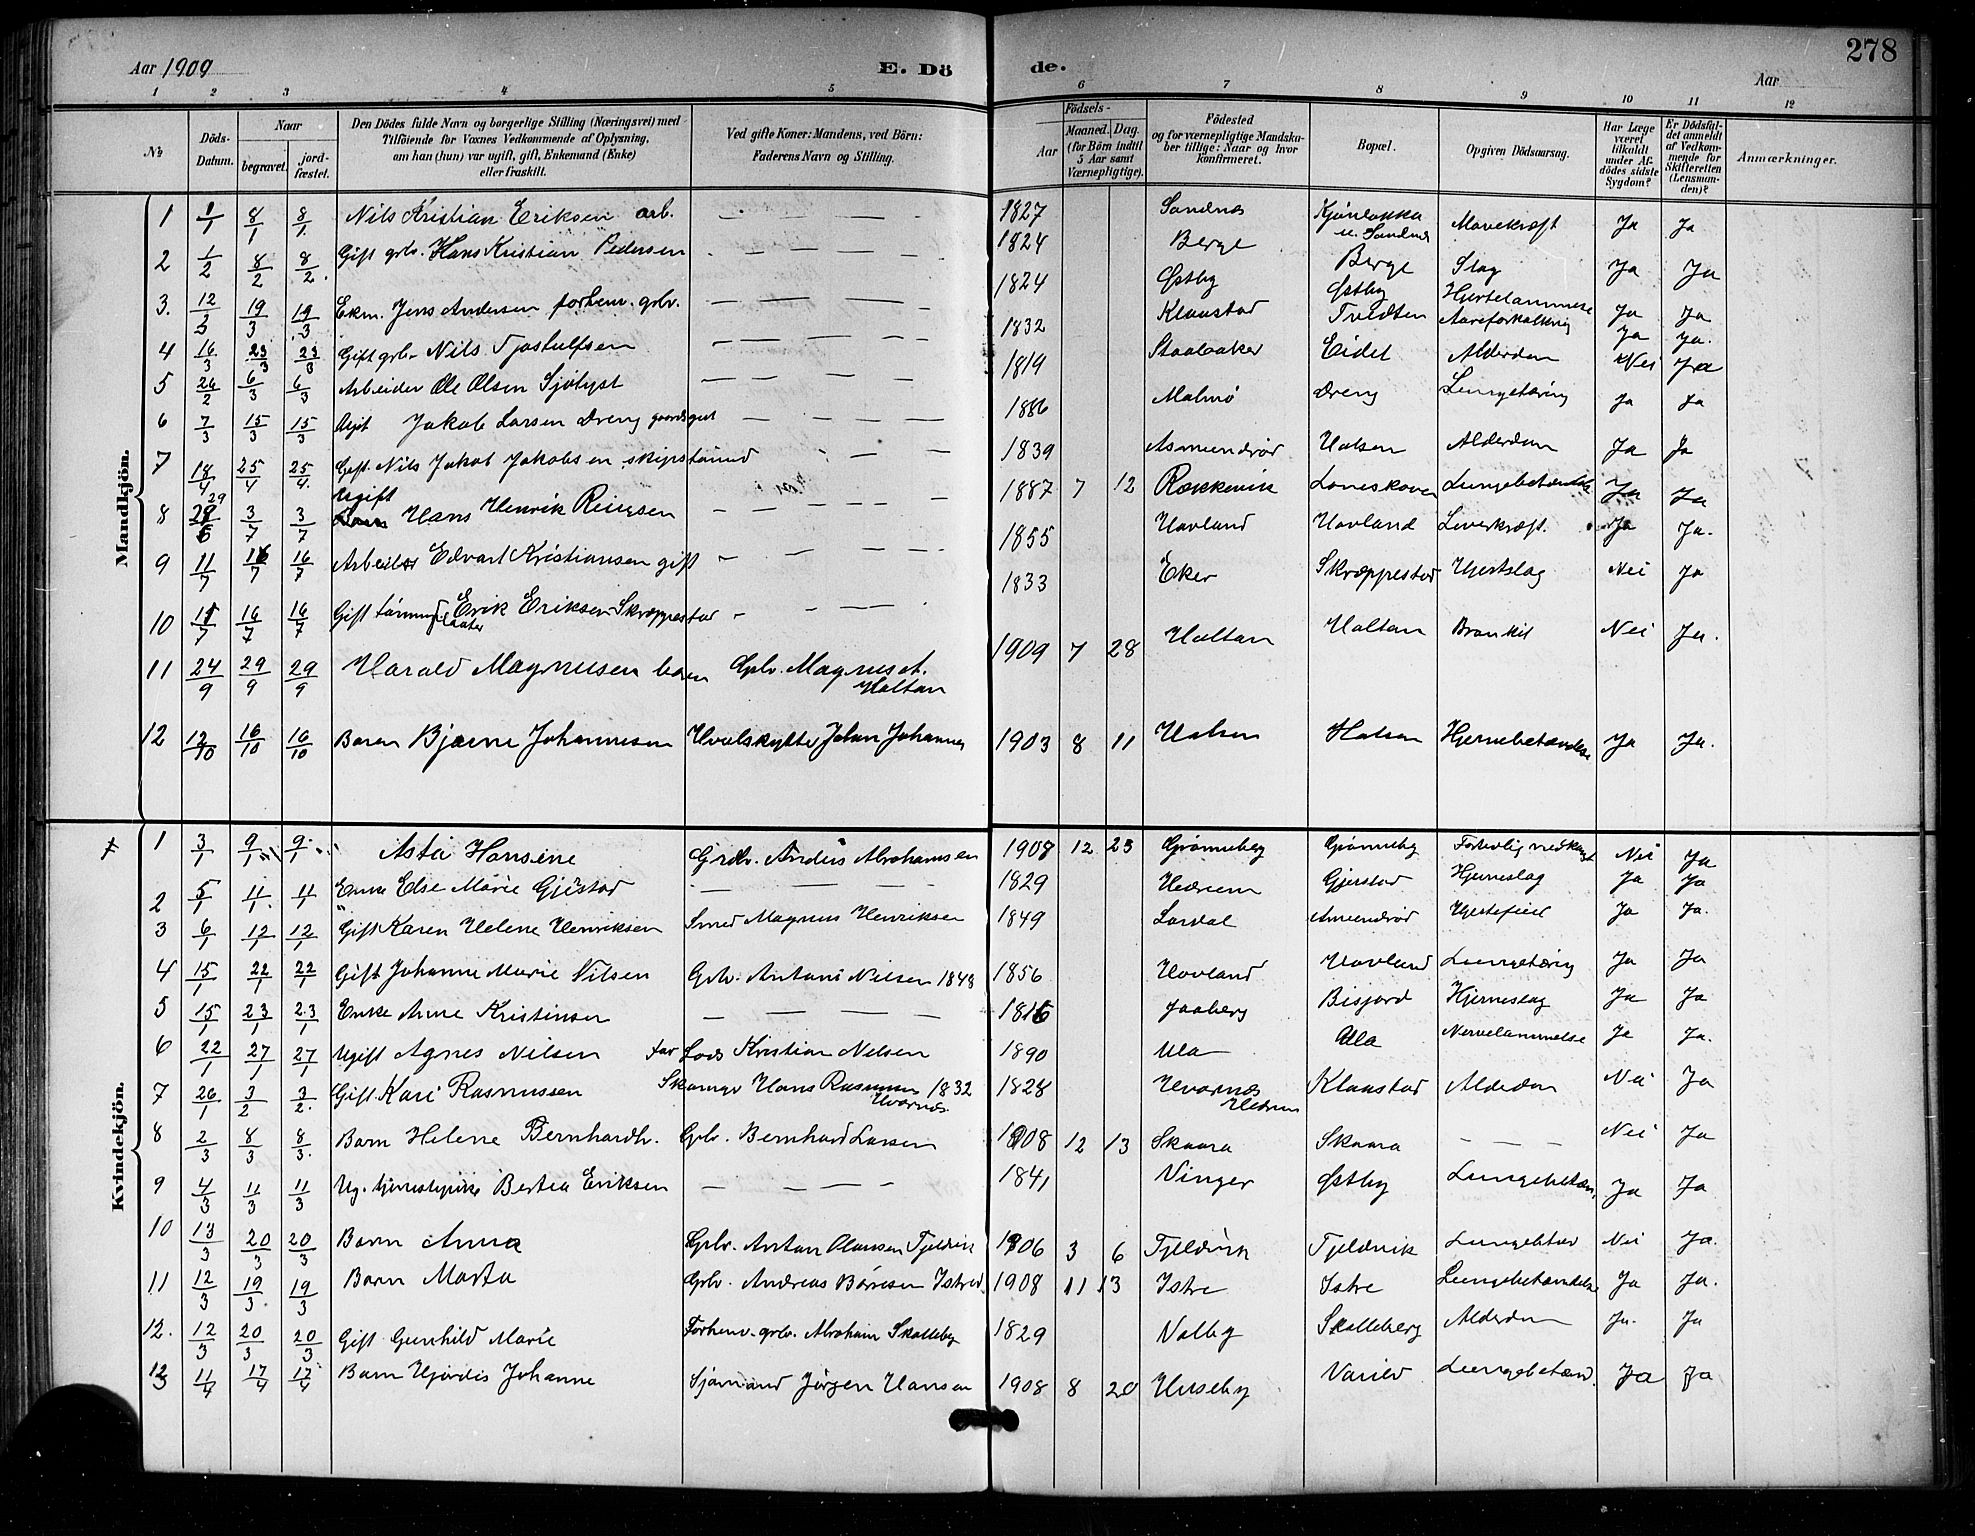 Aar 1909 E. Dö de. Aar 278
1 2 3 4 5 6 7 8 9 10 11 12
No. Döds-Datum. Naar begravet. jord-fæstet. Den Dödes fulde Navn og borgerlige Stilling (Næringsvei) med Tilföiende for Voxnes Vedkommende af Oplysning, om han (hun) var ugift, gift, Enkemand (Enke) eller fraskilt. Ved gifte Koner: Mandens, ved Börn: Faderens Navn og Stilling. Födsels- Aar Maaned. Dag. (for Börn indtil 5 Aar samt Værnepligtige). Födested og for værnepligtige Mandskaber tillige: Naar og hvor konfirmeret. Bopæl. Opgiven Dödsaarsag. Har Læge været tilkaldt under Afdödes sidste Sygdom? Er Dödsfaldet anmeldt af Vedkommende for Skifteretten (Lensmanden)? Anmærkninger.
Mandkjön.
1 1/1 8/1 8/1 Nils Kristian Eriksen arb. — — — — 1827 Sandnes Sandnes Mavekræft Ja Ja
2 1/2 8/2 8/2 Gift grbr. Hans Kristian Pedersen — — — — 1824 Berge Berge Slag Ja Ja
3. 12/3 19/3 19/3 Ekm. Jens Andersen forhenv. grbr. — — — — 1824 Østby Østby Hjertelammelse Ja Ja
4 16/3 23/3 23/3 Gift grbr. Nils Tjostulfsen — — — — 1832 Klaastad Tvedten Aareforkalkning Ja Ja.
5 26/2 6/3 6/3 Arbeider Ole Olsen Sjølyst — — — — 1819 Staalaker Eidet Alderdom Nei Ja
6 7/3 15/3 15/3 Ugift Jakob Larsen Dreng gaardsgut — — — — 1886 Malmö Dreng Lungetæring Ja Ja
7 18/4 25/4 25/4 Gift Nils Jakob Jakobsen skipstømmd — — 1839 Asmundrød Halsen Alderdom Ja Ja
8 29/6 3/7 3/7 Ugift Hans Henrik Reiersen — — — — 1887 7 12 Rekkevik Loneskoven Lungebetændelse Ja Ja
9 11/7 16/7 16/7 Arbeider Edvart Kristiansen gift — — — — 1855 Hovland Hovland Leverkræft. Ja Ja.
10 11/7 16/7 16/7 Gift Erik Eriksen Skreppestad — — — 1833 Eker Skreppestad Hjertslag Nei Ja
11 24/9 29/9 29/9 Harald Magnusen barn Gbr. Magnus A. Holtan 1909 7 28 Holtan Holtan Bronkit Nei Ja.
12 12/10 16/10 16/10 Baren Bjarne Johannesen Hvalskytte Johan Johannes 1903 8 11 Halsen Halsen Hjernebetændelse Ja Ja.
Kvindekjön.
1 3/1 9/1 9/1 Asta Hansine Grdbr. Anders Abrahamsen 1908 12 23 Grønneberg Grønneberg Nei Ja
2 5/1 11/1 11/1 Enke Else Marie Gjerstad — — — 1829 Hedrum Gjerstad Hjerneslag Ja Ja
3 6/1 12/1 12/1 Gift Karen Helene Henriksen Smed Magnus Henriksen 1849 Lardal Amundrød Hjertefeil Ja Ja.
4 15/1 22/1 22/1 Gift Johanne Marie Nilsen Gbr. Antoni Nielsen 1848 1856 Hovland Hovland Lungetæring Ja Ja
5 15/1 23/1 23/1 Enke Anne Kristinsen — — — — 1816 Jaaberg Bisjord Hjerneslag Ja Ja
6 22/1 27/1 27/1 Ugift Agnes Nilsen Far Lods Kristian Nelsen 1890 Ula Ula Nervelammelse Ja Ja.
7 26/1 3/2 3/2. Gift Kari Rasmussen Skomgr Hans Rasmusen 1832 Hvarnes 1828 Hvarnes Hedrum Klaastad Alderdom Nei Ja
8 2/3 8/3 8/3. Barn Helene Bernhardh. Gbr. Bernhard Larsen 1908 12 13 Skaara Skaara — — — Nei Ja
9 4/3 11/3 11/3 Ug. tjenestepike Bertea Eriksen — — — — 1841 Vinger Østby Lungebetæn. Ja Ja
10 13/3 20/3 20/3 Barn Anna Gbr. Anton Olaussen Tjeldvik 1906 3 6 Tjeldvik Tjeldvik Lungebetæn Nei Ja.
11 12/3 19/3 19/3 Barn Marta Gbr. Andreas Børresen Istre 1908 11 13 Istre Istre Lungebetændelse Ja Ja.
12. 12/3 20/3 20/3 Gift Gunhild Marie Forhenv. grbr. Abraham Skalleberg 1829 Valby Skalleberg Alderdom Ja. Ja
13 11/4 17/4 17/4 Barn Hjørdis Johanne Sjømand Jörgen Hansen 1908 8 20 Huseby Varild Lungebetænd. Ja Ja